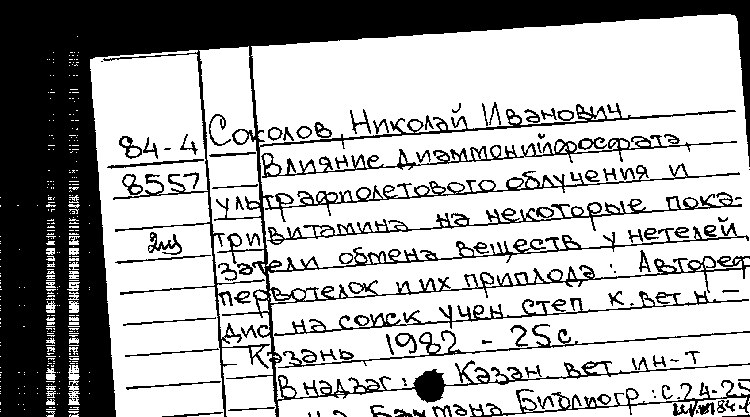 84-4 Соколов, Николай Иванович.
8557 Влияние диаммонийфосфата,
ультрафполетового облучения и
тривитамина на некоторые пока-
затели обмена веществ у нетелей,
первотелок и их приплода: Автореф
дис на соиск учен степ к.вет.н. —
Казань 1982 - 25с.
В надзаг: Казан вет ин-т
Баумана Библиогр: с 24-25